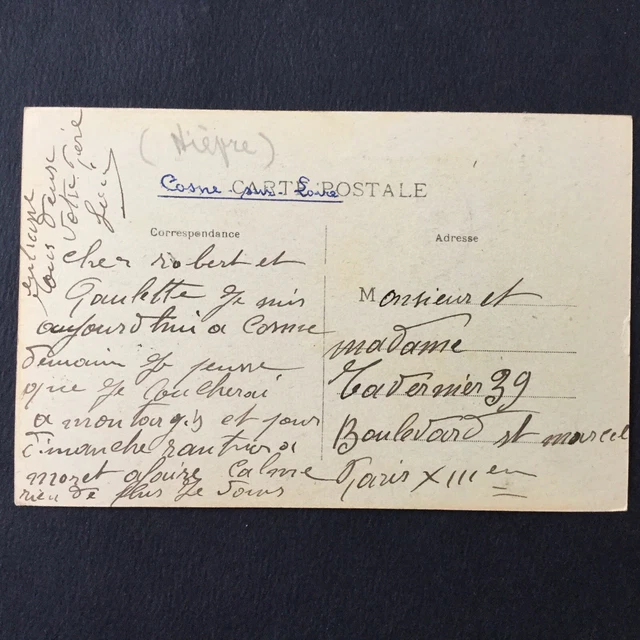 (Nièvre)
Cosne sur Loire
CARTE POSTALE
Correspondance
cher robert et
Paulette Je suis
aujourd'hui a Cosne
demain Je pense
que Je coucherai
a montargis et pour
dimanche
moret afaire Calme
rien de plus Je vous
embrasse
tous deux
votre père
Adresse
Monsieur et
madame
Tavernier 39
Boulevard st marcel
Paris XIII em